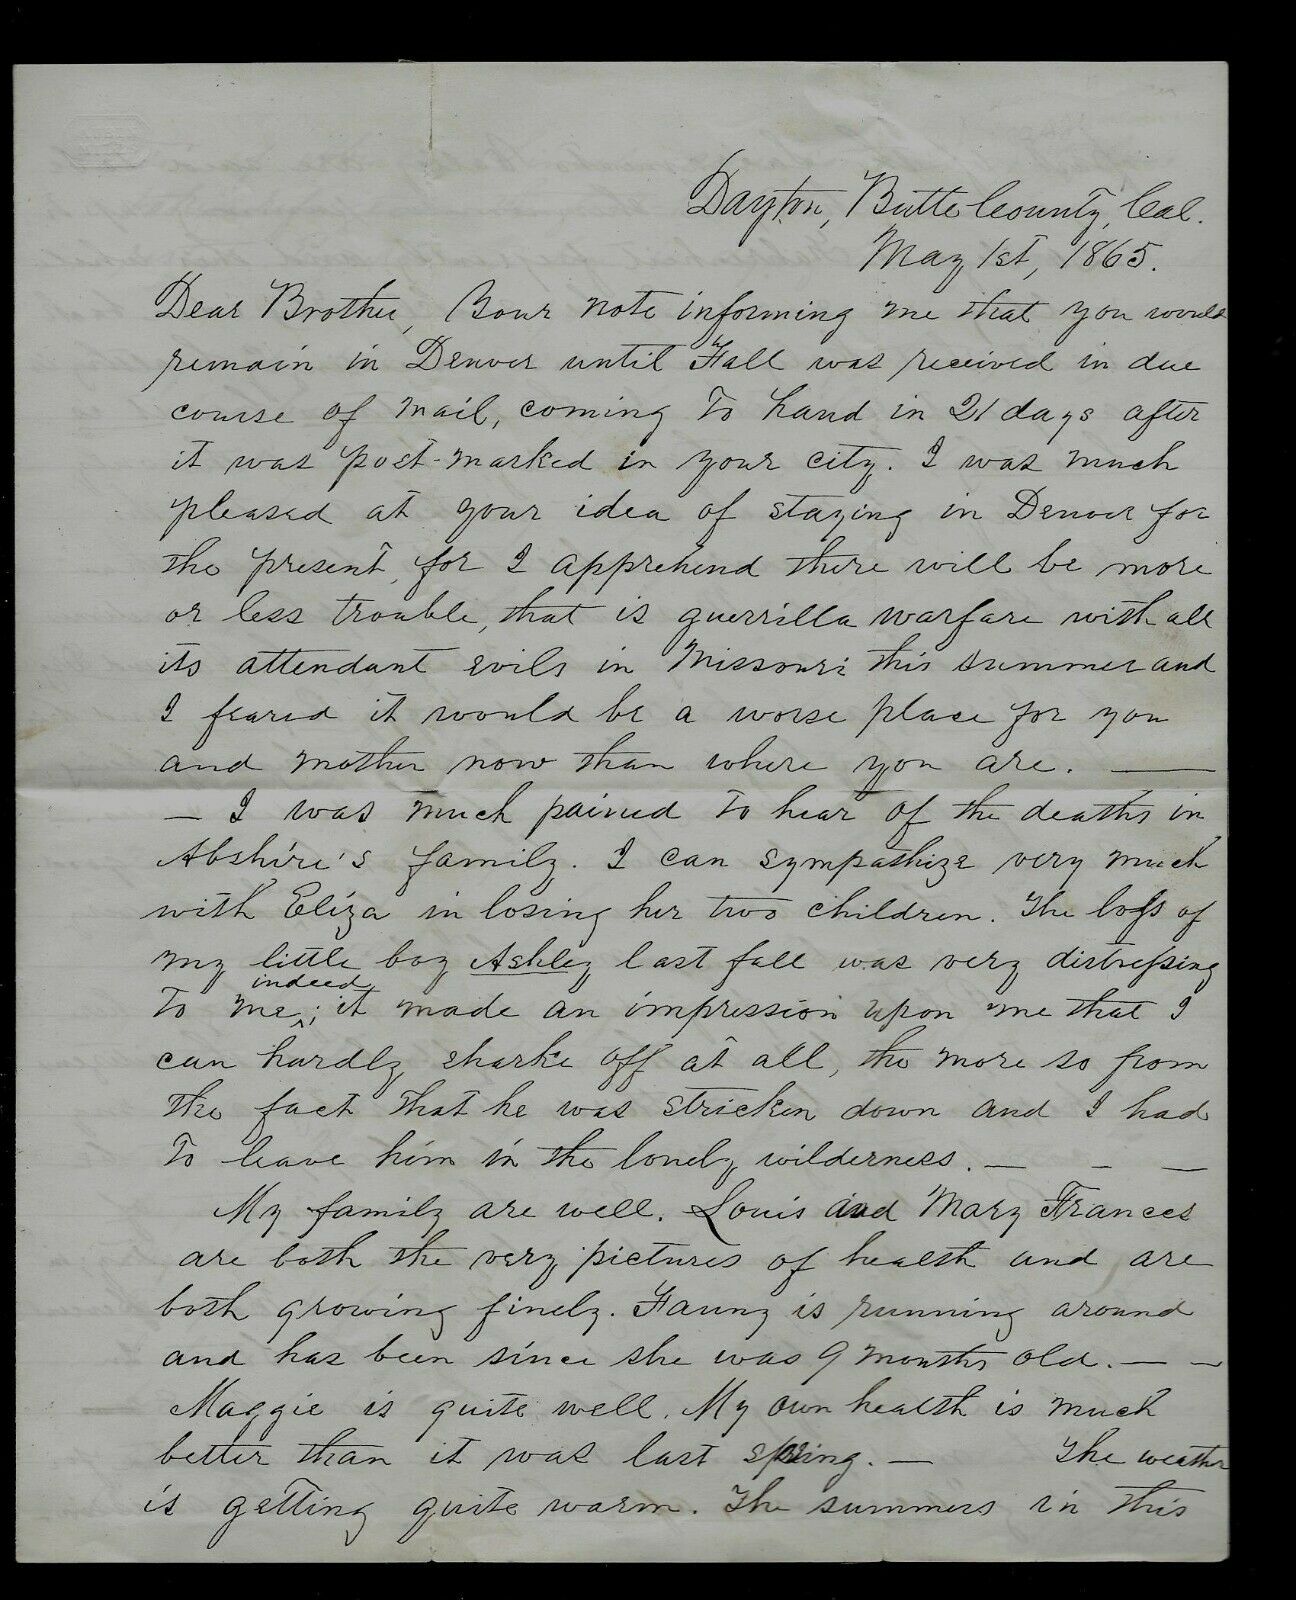 Dayton, Butte County, Cal.
May 1st, 1865.
Dear Brother, Your note informing me that you would
remain in Denver until Fall was received in due
course of mail, coming to hand in 21 days after
it was post-marked in your city. I was much
pleased at your idea of staying in Denver for
the present, for I apprehend there will be more
or less trouble, that is guerrilla warfare with all
its attendant evils in Missouri this summer and
I feared it would be a worse place for you
and mother now than where you are. —
— I was much pained to hear of the deaths in
Abshire's family. I can sympathize very much
with Eliza in losing her two children. The loss of
my little boy Ashley last fall was very distressing
to me indeed; it made an impression upon me that I
can hardly sharke off at all, the more so from
the fact that he was stricken down and I had
to leave him in the lonely wilderness. — – —
My family are well. Louis and Mary Frances
are both the very pictures of health and are
both growing finely. Fanny is running around
and has been since she was 9 months old. — –
Maggie is quite well. My own health is much
better than it was last spring. — The weather
is getting quite warm. The summers in this